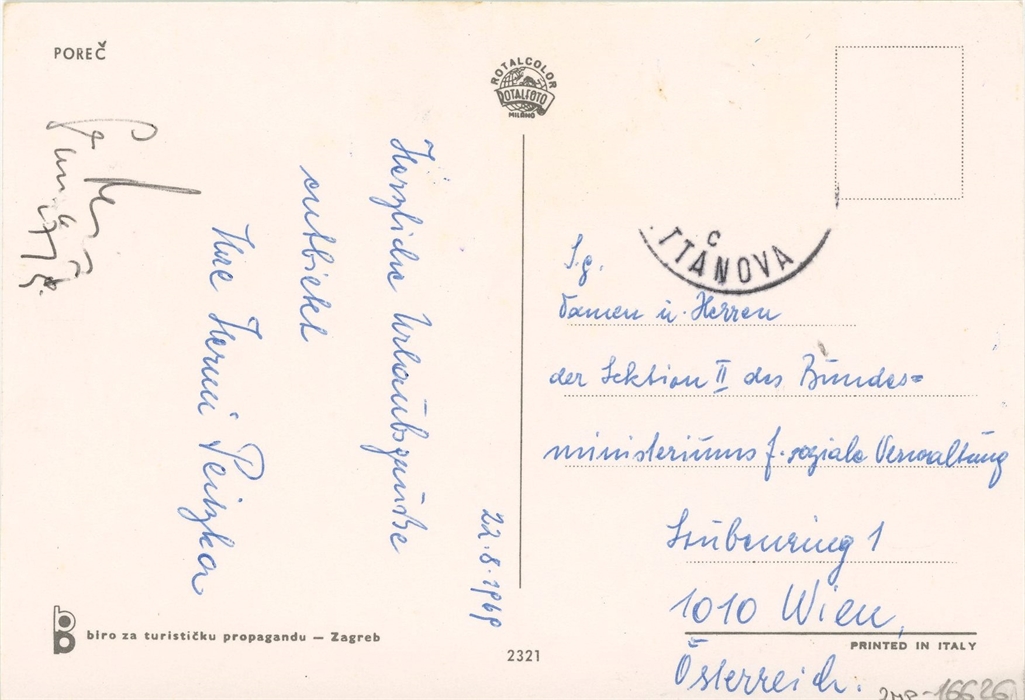 POREČ
ROTALCOLOR
ROTALFOTO
MILANO
22.8.1969
Herzliche Urlaubsgrüße
entbietet
Ihre Hermi Peitzka
C
TTANOVA
S.g.
Damen u. Herren
der Sektion II des Bundes=
ministeriums f. soziale Verwaltung
Stubenring 1
1010 Wien,
Österreich.
biro za turističku propagandu — Zagreb
2321
PRINTED IN ITALY
16626